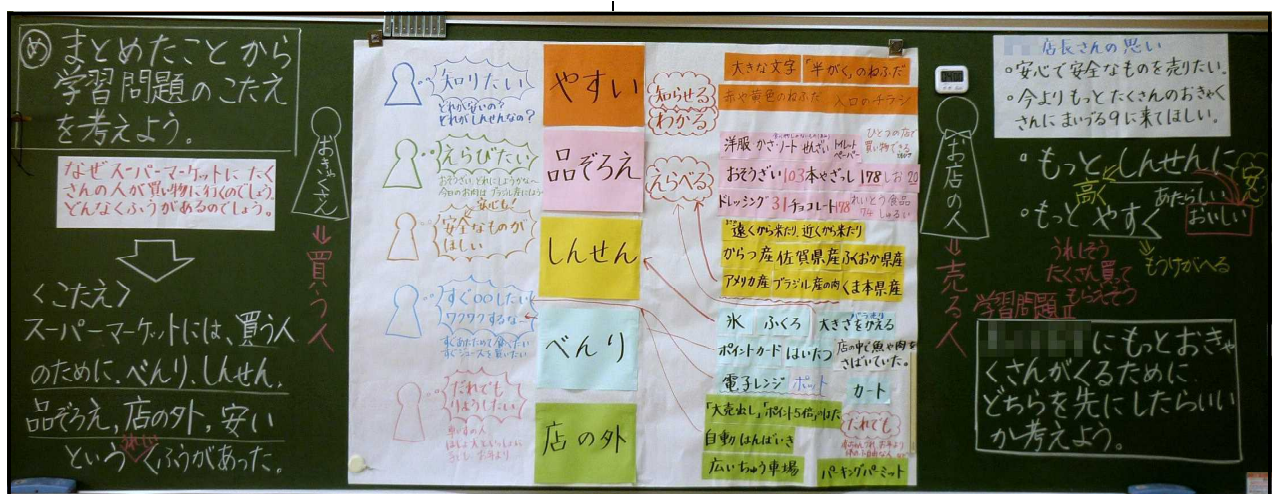 め まとめたことから
学習問題のこたえ
を考えよう。
なぜスーパーマーケットにたく
さんの人が買い物に行くのでしょう。
どんなくふうがあるのでしょう。
おきゃくさん
⇓買う人
〈こたえ〉
スーパーマーケットには、買う人
のために、べんり、しんせん、
品ぞろえ、店の外、安い
という くふうがあった。
知りたい
どれが安いの?
どれがしんせんなの?
えらびたい
おそうざいどれにしようかな~
安心も!
安全なものが
ほしい
すぐ〇〇したい
ワクワクするな~
すぐあたためて食べたい
すぐジュースを買いたい
だれでも
りようしたい
やすい
品ぞろえ
しんせん
べんり
店の外
知らせる
わかる
えらべる
大きな文字 「半がく」のねふだ
赤や黄色のねふだ 入口のチラシ
ひとつの店で
買い物できる
洋服 かさ・ノート せんざい トイレットペーパー
おそうざい103本 やざっし 178 しお 20
ドレッシング31 チョコレート178 れいとう食品
74 しゅるい
遠くから来たり、近くから来たり
からつ産 佐賀県産 ふくおか県産
アメリカ産 ブラジル産の肉 くま本県産
氷 ふくろ 大きさをかえる
ポイントカード はいたつ 店の中で魚や肉を
さばいていた。
電子レンジ ポット カート
「大売出し」「ポイント5倍」のはた
自動はんばいき
だれでも
広いちゅう車場 パーキングパーミット
お店の人
⇓売る人
店長さんの思い
○安心で安全なものを売りたい。
○今よりもっとたくさんのおきゃく
さんにまいづる9に来てほしい。
○もっとしんせんに
高く あたらしい 安
○もっとやすく おいしい
うれしそう
たくさん買って
もらえそう
もうけがへる
学習問題Ⅱ
にもっとおきゃ
くさんがくるために
どちらを先にしたらいい
か考えよう。